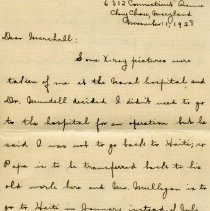 6312 Connecticut Avenue
Chevy Chase, Maryland
November 1, 1928
Dear Marshall:
Some X-ray pictures were
taken of me at the Naval hospital and
Dr. Mundell decided I didn't need to go
to the hospital for an operation but he
said I was not to go back to Haiti; so
Papa is to be transferred back to his
old work here and Mr. Mulligan is to
go to Haiti in January instead of July